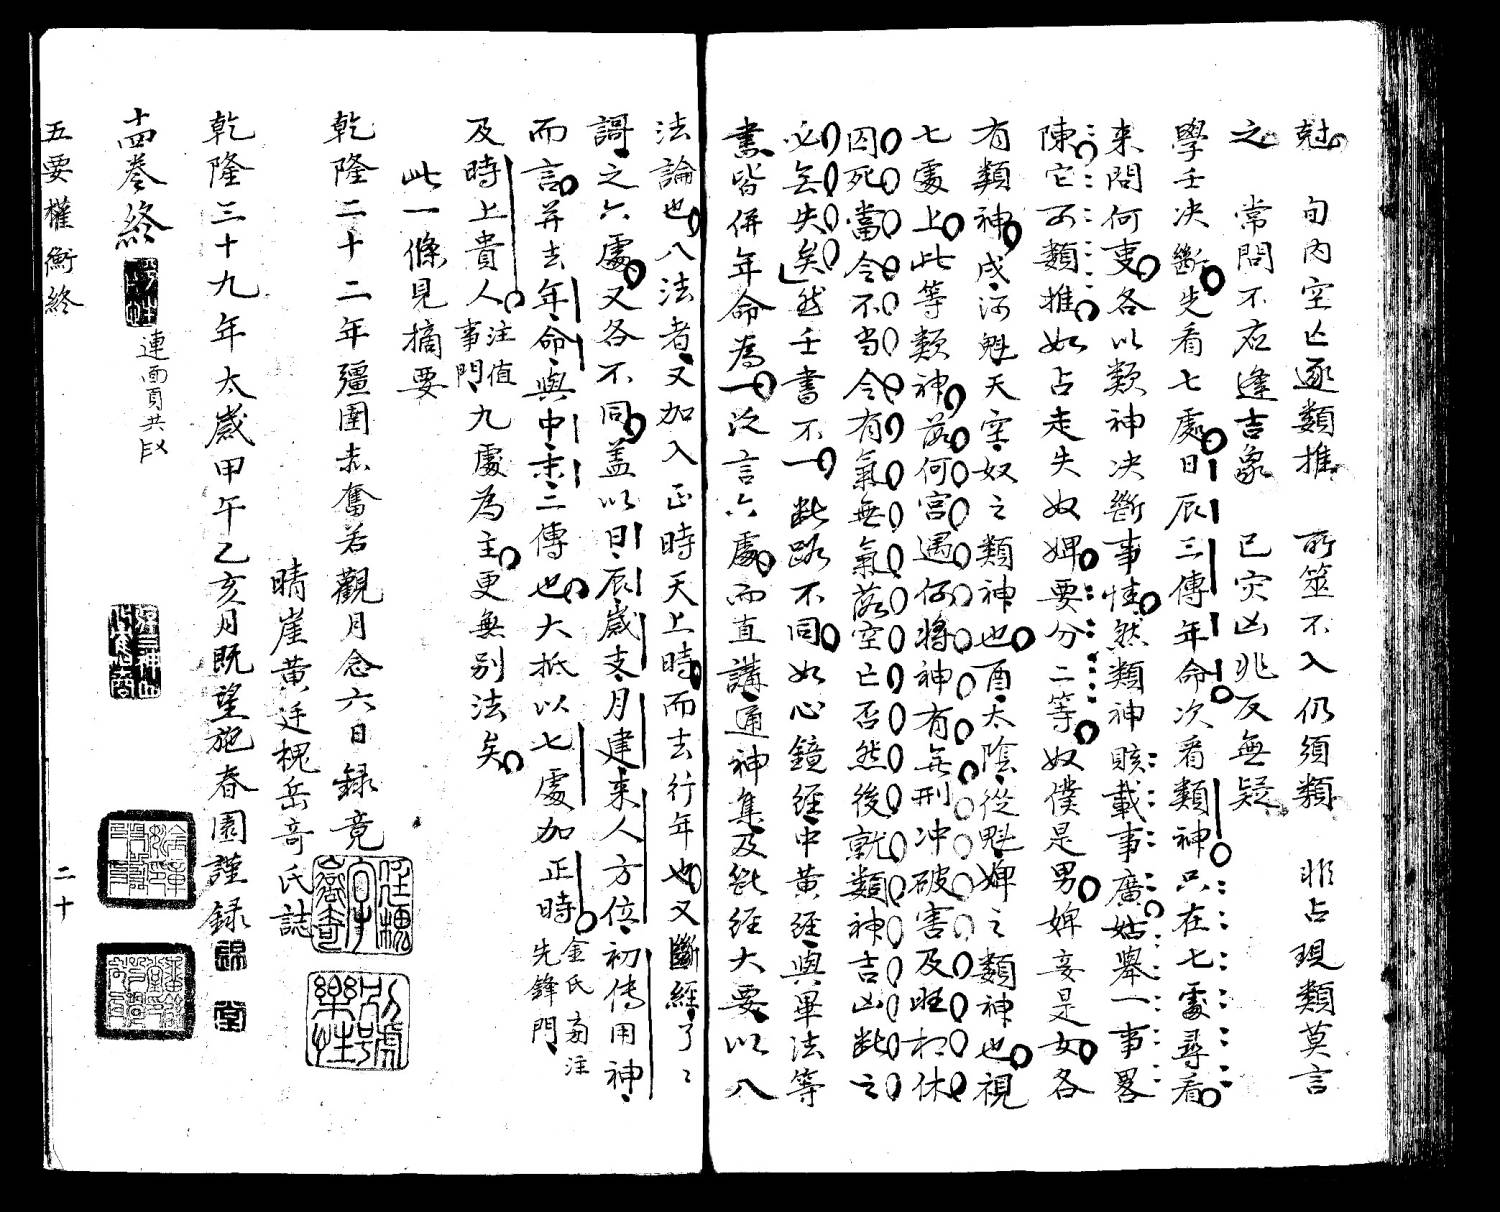 尅　旬內空亡逐類推　所筮不入仍須類　非占現類莫言
之　常問不應逢吉象　已灾凶兆反無疑
學壬决斷先看七處日辰三傳年命次看類神只在七處尋看
来問何事各以類神决斷事情然類神賅載事廣姑舉一事畧
陳它可類推如占走失奴婢要分二等奴僕是男婢妾是女各
有類神戌河魁天空奴之類神也酉太陰從魁婢之類神也視
七處上此等類神落何宮遇何將神有無刑冲破害及旺相休
囚死當令不当令有氣無氣落空亡否然後就類神吉凶断之
必無失矣然壬書不一断路不同如心鏡經中黃經與畢法等
書皆併年命為一泛言六處而直講通神集及毓經大要以八
法論也八法者又加入正時天上時而去行年也又斷經了了
謌之六處又各不同盖以日辰歲支月建来人方位初傳用神
而言并去年命與中末二傳也大抵以七處加正時金氏注先鋒門
及時上貴人注值事門九處為主更無别法矣
此一條見摘要
乾隆二十二年疆圉赤奮若觀月念六日録竟
晴崖黃廷槐岳奇氏誌
乾隆三十九年太歲甲午乙亥月既望施春園謹録
十四卷終
連面頁共
五要權衡終
二十